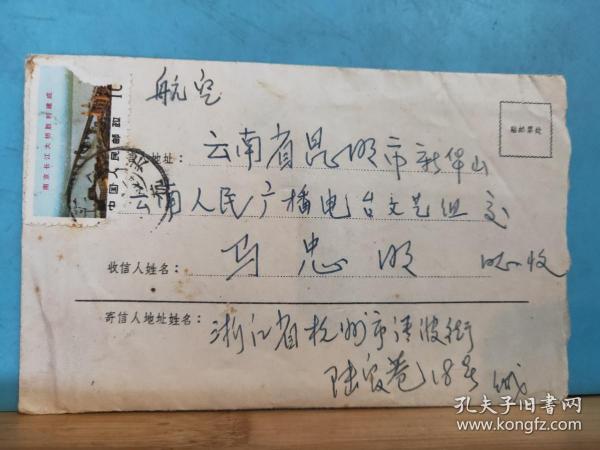 南京长江大桥胜利建成
中国人民邮政
航空
地址：云南省昆明市新华山
云南人民广播电台文艺组 交
收信人姓名：马忠明 收
寄信人地址姓名：浙江省杭州市清波街
18号
孔夫子旧书网
www.kongfz.com